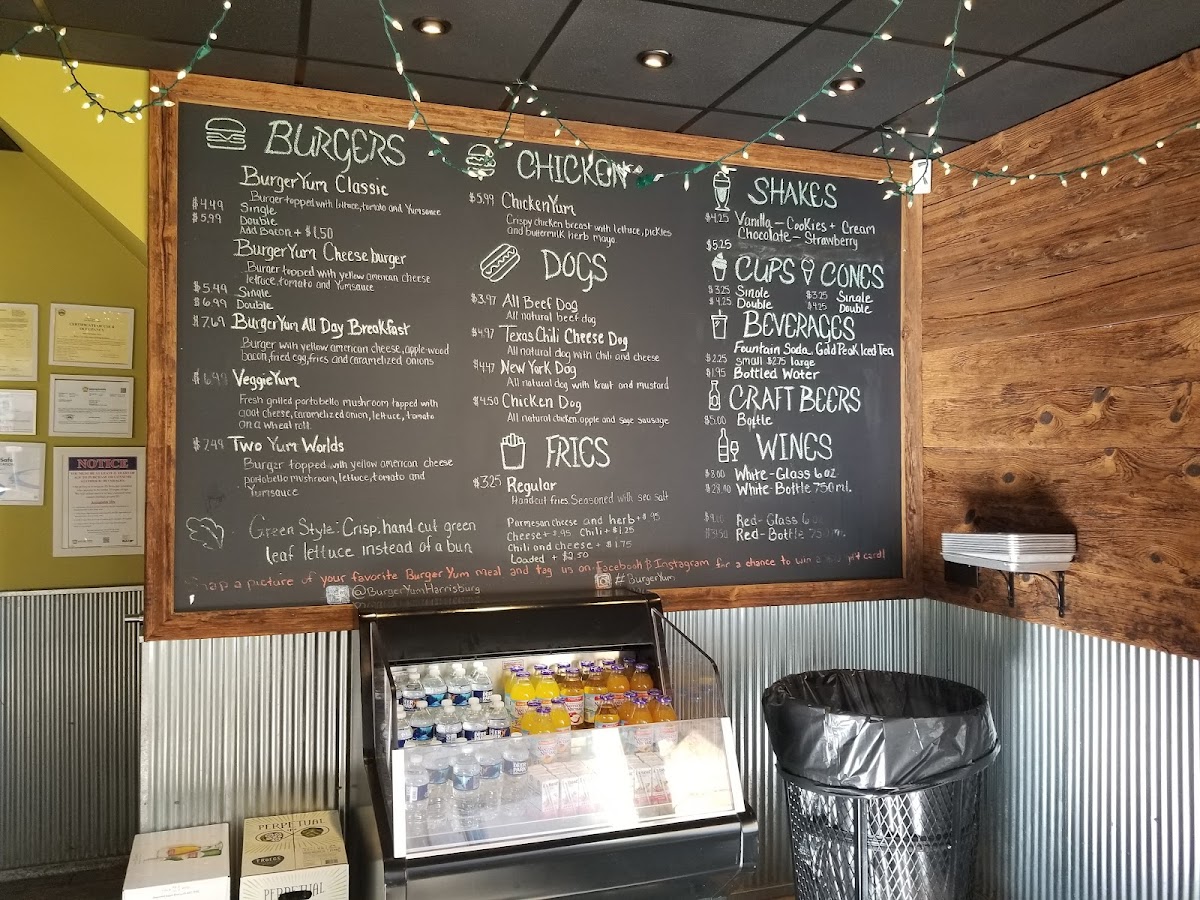 BURGERS
BurgerYum Classic
Burger topped with lettuce, tomato and Yumsauce
$4.49 Single
$5.99 Double
Add Bacon + $1.50
BurgerYum Cheeseburger
Burger topped with yellow american cheese
lettuce, tomato and Yumsauce
$5.49 Single
$6.99 Double
$7.69 BurgerYum All Day Breakfast
Burger with yellow american cheese, apple-wood
bacon, fried egg, fries and caramelized onions
VeggieYum
Fresh grilled portobello mushroom topped with
goat cheese, caramelized onion, lettuce, tomato
on a wheat roll.
$7.49 Two Yum Worlds
Burger topped with yellow american cheese
portobello mushroom, lettuce, tomato and
Yumsauce
Green Style: Crisp, hand cut green
leaf lettuce instead of a bun
CHICKEN
$5.99 ChickenYum
Crispy chicken breast with lettuce, pickles
and buttermilk herb mayo
DOGS
$3.97 All Beef Dog
All natural beef dog
$4.97 Texas Chili Cheese Dog
All natural dog with chili and cheese
$4.47 New York Dog
All natural dog with kraut and mustard
$4.50 Chicken Dog
All natural chicken, apple and sage sausage
FRIES
$3.25 Regular
Handcut fries. Seasoned with sea salt
Parmesan cheese and herb + $.95
Cheese + $.95 Chili + $1.25
Chili and cheese + $1.75
Loaded + $2.50
SHAKES
$4.25 Vanilla - Cookies + Cream
Chocolate - Strawberry
$5.25
CUPS CONES
$3.25 Single $3.25 Single
$4.25 Double $4.25 Double
BEVERAGES
Fountain Soda, Gold Peak Iced Tea
$2.25 Small $2.75 large
$1.95 Bottled Water
CRAFT BEERS
$5.00 Bottle
WINES
$8.00 White-Glass 6 oz.
$28.00 White-Bottle 750 ml.
Red-Glass 6
Red-Bottle 750 ml.
Snap a picture of your favorite BurgerYum meal and tag us on Facebook & Instagram for a chance to win a gift card!
@BurgerYumHarrisburg #BurgerYum
NOTICE
DEER PARK
PERPETUAL
TROEGS
PERPETUAL